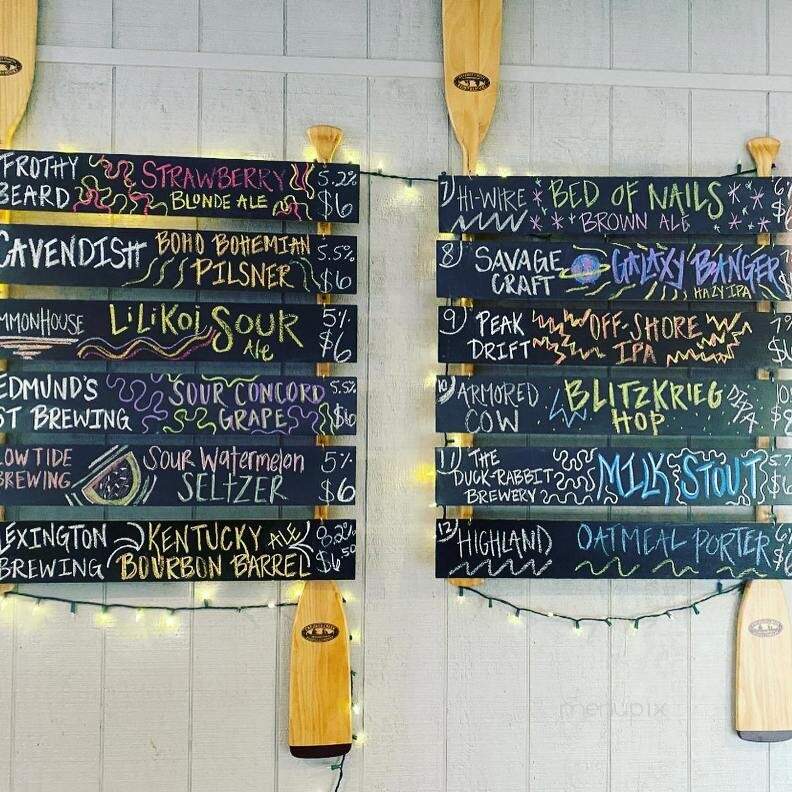 FROTHY STRAWBERRY 5.2%
BEARD BLONDE ALE $6
CAVENDISH BOHO BOHEMIAN 5.5%
PILSNER $6
MMONHOUSE LiLiKoi SOUR 5%
Ale $6
EDMUND'S SOUR CONCORD 5.5%
ST BREWING GRAPE $6
LOW TIDE SOUR Watermelon 5%
BREWING SELTZER $6
LEXINGTON KENTUCKY ALE 8.2%
BREWING BOURBON BARREL $6.50
7) HI-WIRE BED OF NAILS
BROWN ALE
8) SAVAGE GALAXY BANGER
CRAFT HAZY IPA
9) PEAK OFF-SHORE
DRIFT IPA
10) ARMORED BLITZKRIEG
COW HOP DIPA
11) THE
DUCK-RABBIT MILK STOUT
BREWERY
12) HIGHLAND OATMEAL PORTER
menupix